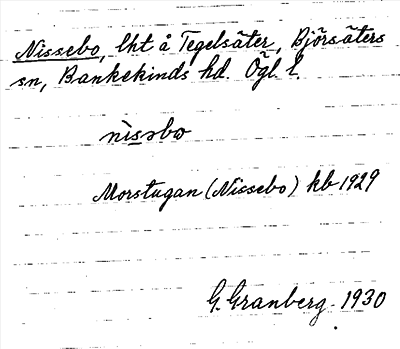 Nissebo, lht å Tegelsäter, Björsäters
sn, Bankekinds hd. Ögl. l.
nìsəbω
Morstugan (Nissebo) kb 1929
G. Granberg. 1930